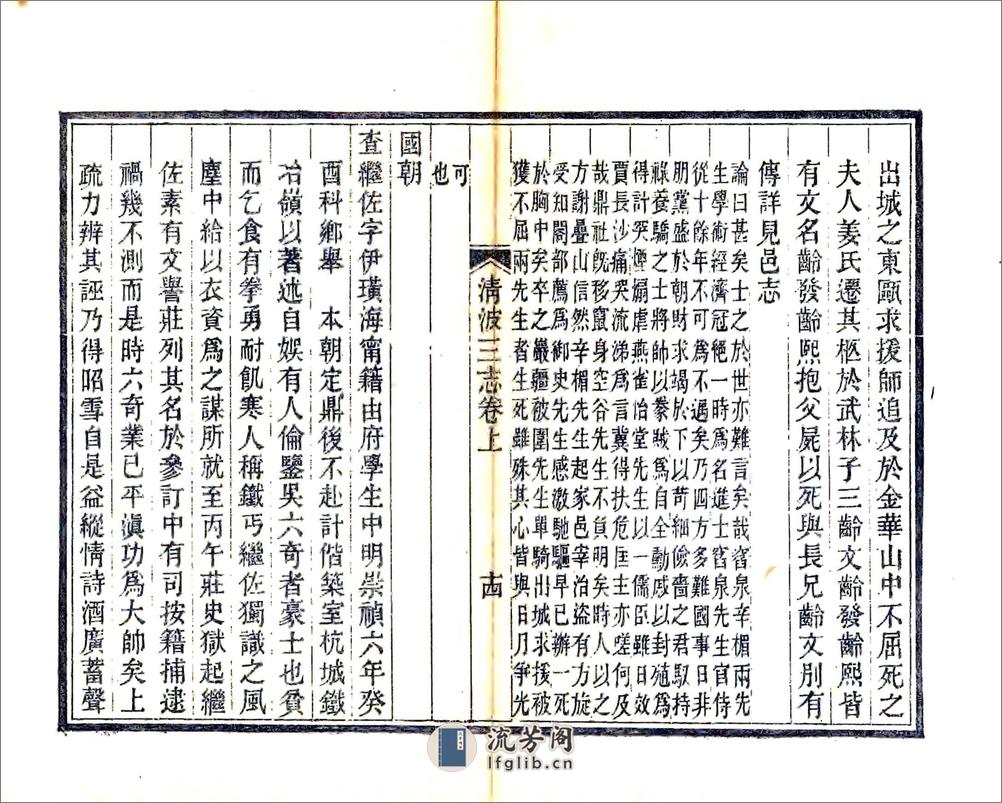 出城之東甌求援師追及於金華山中不屈死之
夫人姜氏遷其柩於武林子三齡文齡發齡熙皆
有文名齡發齡熙抱父屍以死與長兄齡文別有
傳詳見邑志
論曰甚矣士之於世亦難言矣哉窞泉辛楣兩先
生學術經濟冠絕一時為名進士窞泉先生官侍
從十餘年不可為不遇矣乃四方多難國事日非
朋黨盛於朝財求竭於下以苛細儉嗇之君馭持
祿養驕之士將帥以豢賊為自全勳戚以封殖為
得計突爩煽虐燕雀怡堂先生以一儒臣雖日效
賈長沙痛哭流涕為言冀得扶危匡主亦嗟何及
哉鼎社旣移竄身空谷先生不負明矣時人以之
方謝疊山信然辛楣先生起家邑宰治盜有方旋
受知閣部薦為御史先生感激馳驅早已辦一死
於胸中矣卒之嚴疆被圍先生單騎出城求援被
獲不屈兩先生者生死雖殊其心皆與日月爭光
可也
清波三志卷上
十四
國朝
查繼佐字伊璜海甯籍由府學生中明崇禎六年癸
酉科鄉舉 本朝定鼎後不赴計偕築室杭城鐵
冶嶺以著述自娛有人倫鑒吳六奇者豪士也貧
而乞食有拳勇耐飢寒人稱鐵丐繼佐獨識之風
塵中給以衣資為之謀所就至丙午莊史獄起繼
佐素有文譽莊列其名於參訂中有司按籍捕逮
禍幾不測而是時六奇業已平滇功為大帥矣上
疏力辨其誣乃得昭雪自是益縱情詩酒廣蓄聲
流芳阁
lfglib.cn